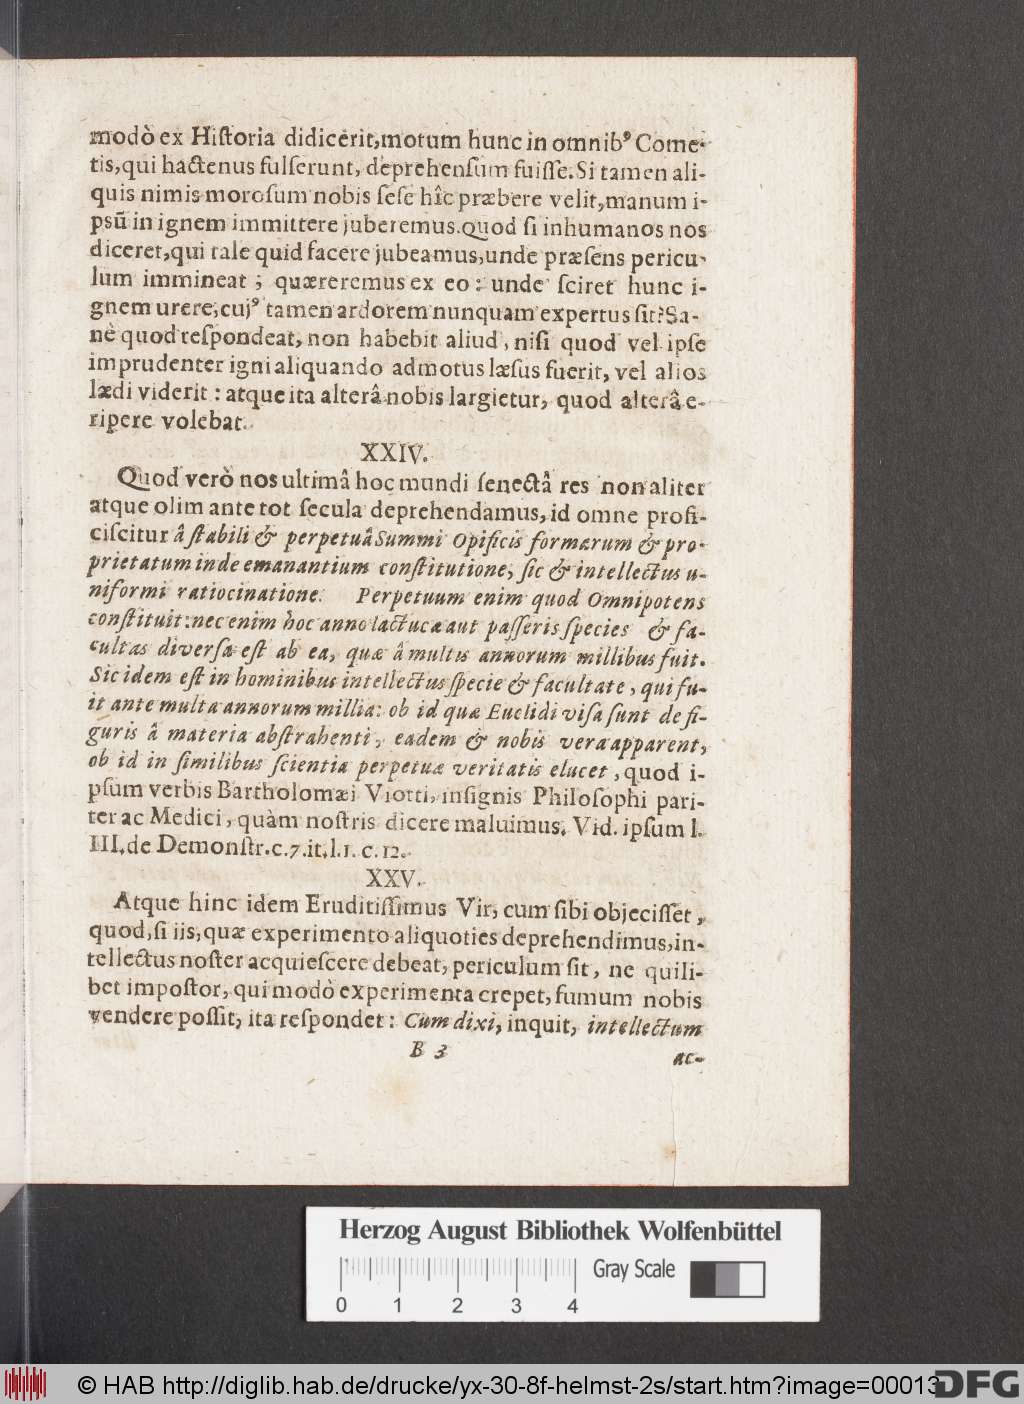 modò ex Hiſtoria didicerit, motum hunc in omnibꝰ Come-
tis, qui hactenus fulſerunt, deprehenſum fuiſſe. Si tamen ali-
quis nimis moroſum nobis ſeſe hîc præbere velit, manum i-
pſū in ignem immittere juberemus. Quod ſi inhumanos nos
diceret, qui tale quid facere jubeamus, unde præſens pericu-
lum immineat ; quæreremus ex eo : unde ſciret hunc i-
gnem urere, cujꝰ tamen ardorem nunquam expertus ſit? Sa-
nè quod reſpondeat, non habebit aliud, niſi quod vel ipſe
imprudenter igni aliquando admotus læſus fuerit, vel alios
lædi viderit : atque ita alterâ nobis largietur, quod alterâ e-
ripere volebat.
XXIV.
Quod verò nos ultimâ hoc mundi ſenectâ res non aliter
atque olim ante tot ſecula deprehendamus, id omne profi-
ciſcitur â ſtabili & perpetuâ Summi Opificis formarum & pro-
prietatum inde emanantium conſtitutione, ſic & intellectus u-
niformi ratiocinatione. Perpetuum enim quod Omnipotens
conſtituit: nec enim hoc anno lactucæ aut paſſeris ſpecies & fa-
cultas diverſa eſt ab ea, quæ â multis annorum millibus fuit.
Sic idem eſt in hominibus intellectus ſpecie & facultate, qui fu-
it ante multa annorum millia: ob id quæ Euclidi viſa ſunt de fi-
guris â materia abſtrahenti, eadem & nobis vera apparent,
ob id in ſimilibus ſcientia perpetuæ veritatis elucet, quod i-
pſum verbis Bartholomæi Viotti, inſignis Philoſophi pari-
ter ac Medici, quàm noſtris dicere maluimus. Vid. ipſum l.
III. de Demonſtr. c. 7. it. l. 1. c. 12.
XXV.
Atque hinc idem Eruditiſſimus Vir, cum ſibi objeciſſet,
quod, ſi iis, quæ experimento aliquoties deprehendimus, in-
tellectus noſter acquieſcere debeat, periculum ſit, ne quili-
bet impoſtor, qui modò experimenta crepet, fumum nobis
vendere poſſit, ita reſpondet : Cum dixi, inquit, intellectum
B 3
ac-
Herzog August Bibliothek Wolfenbüttel
Gray Scale
0 1 2 3 4
© HAB http://diglib.hab.de/drucke/yx-30-8f-helmst-2s/start.htm?image=00013
DFG